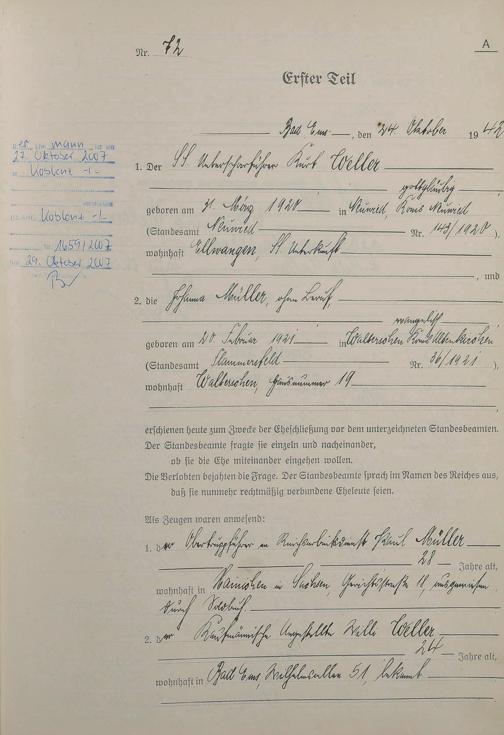 Nr. 72
A
Erster Teil
Bad Ems, den 24. Oktober 1942
Der Mann ist am
27. Oktober 2007
in Koblenz -/-
Koblenz -/-
Nr. 1659/2007
29. Oktober 2007
1. Der SS Unterscharführer Kurt Weller
gottgläubig
geboren am 31. März 1920 in Neuwied, Kreis Neuwied
(Standesamt Neuwied Nr. 143/1920),
wohnhaft Ellwangen, SS Unterkunft
, und
2. die Johanna Müller, ohne Beruf,
evangelisch
geboren am 20. Februar 1921 in Walterschen Kreis Altenkirchen
(Standesamt Flammersfeld Nr. 36/1921),
wohnhaft Walterschen, Hausnummer 19
erschienen heute zum Zwecke der Eheschließung vor dem unterzeichneten Standesbeamten.
Der Standesbeamte fragte sie einzeln und nacheinander,
ob sie die Ehe miteinander eingehen wollen.
Die Verlobten bejahten die Frage. Der Standesbeamte sprach im Namen des Reiches aus,
daß sie nunmehr rechtmäßig verbundene Eheleute seien.
Als Zeugen waren anwesend:
1. der Obertruppführer im Reichsarbeitsdienst Paul Müller
28 Jahre alt,
wohnhaft in in Sachsen, Gerichtsstraße 18, ausgewiesen
durch Soldbuch
2. der Kaufmännische Angestellte Willi Weller,
24 Jahre alt,
wohnhaft in Bad Ems, Wilhelmsallee 51, bekannt